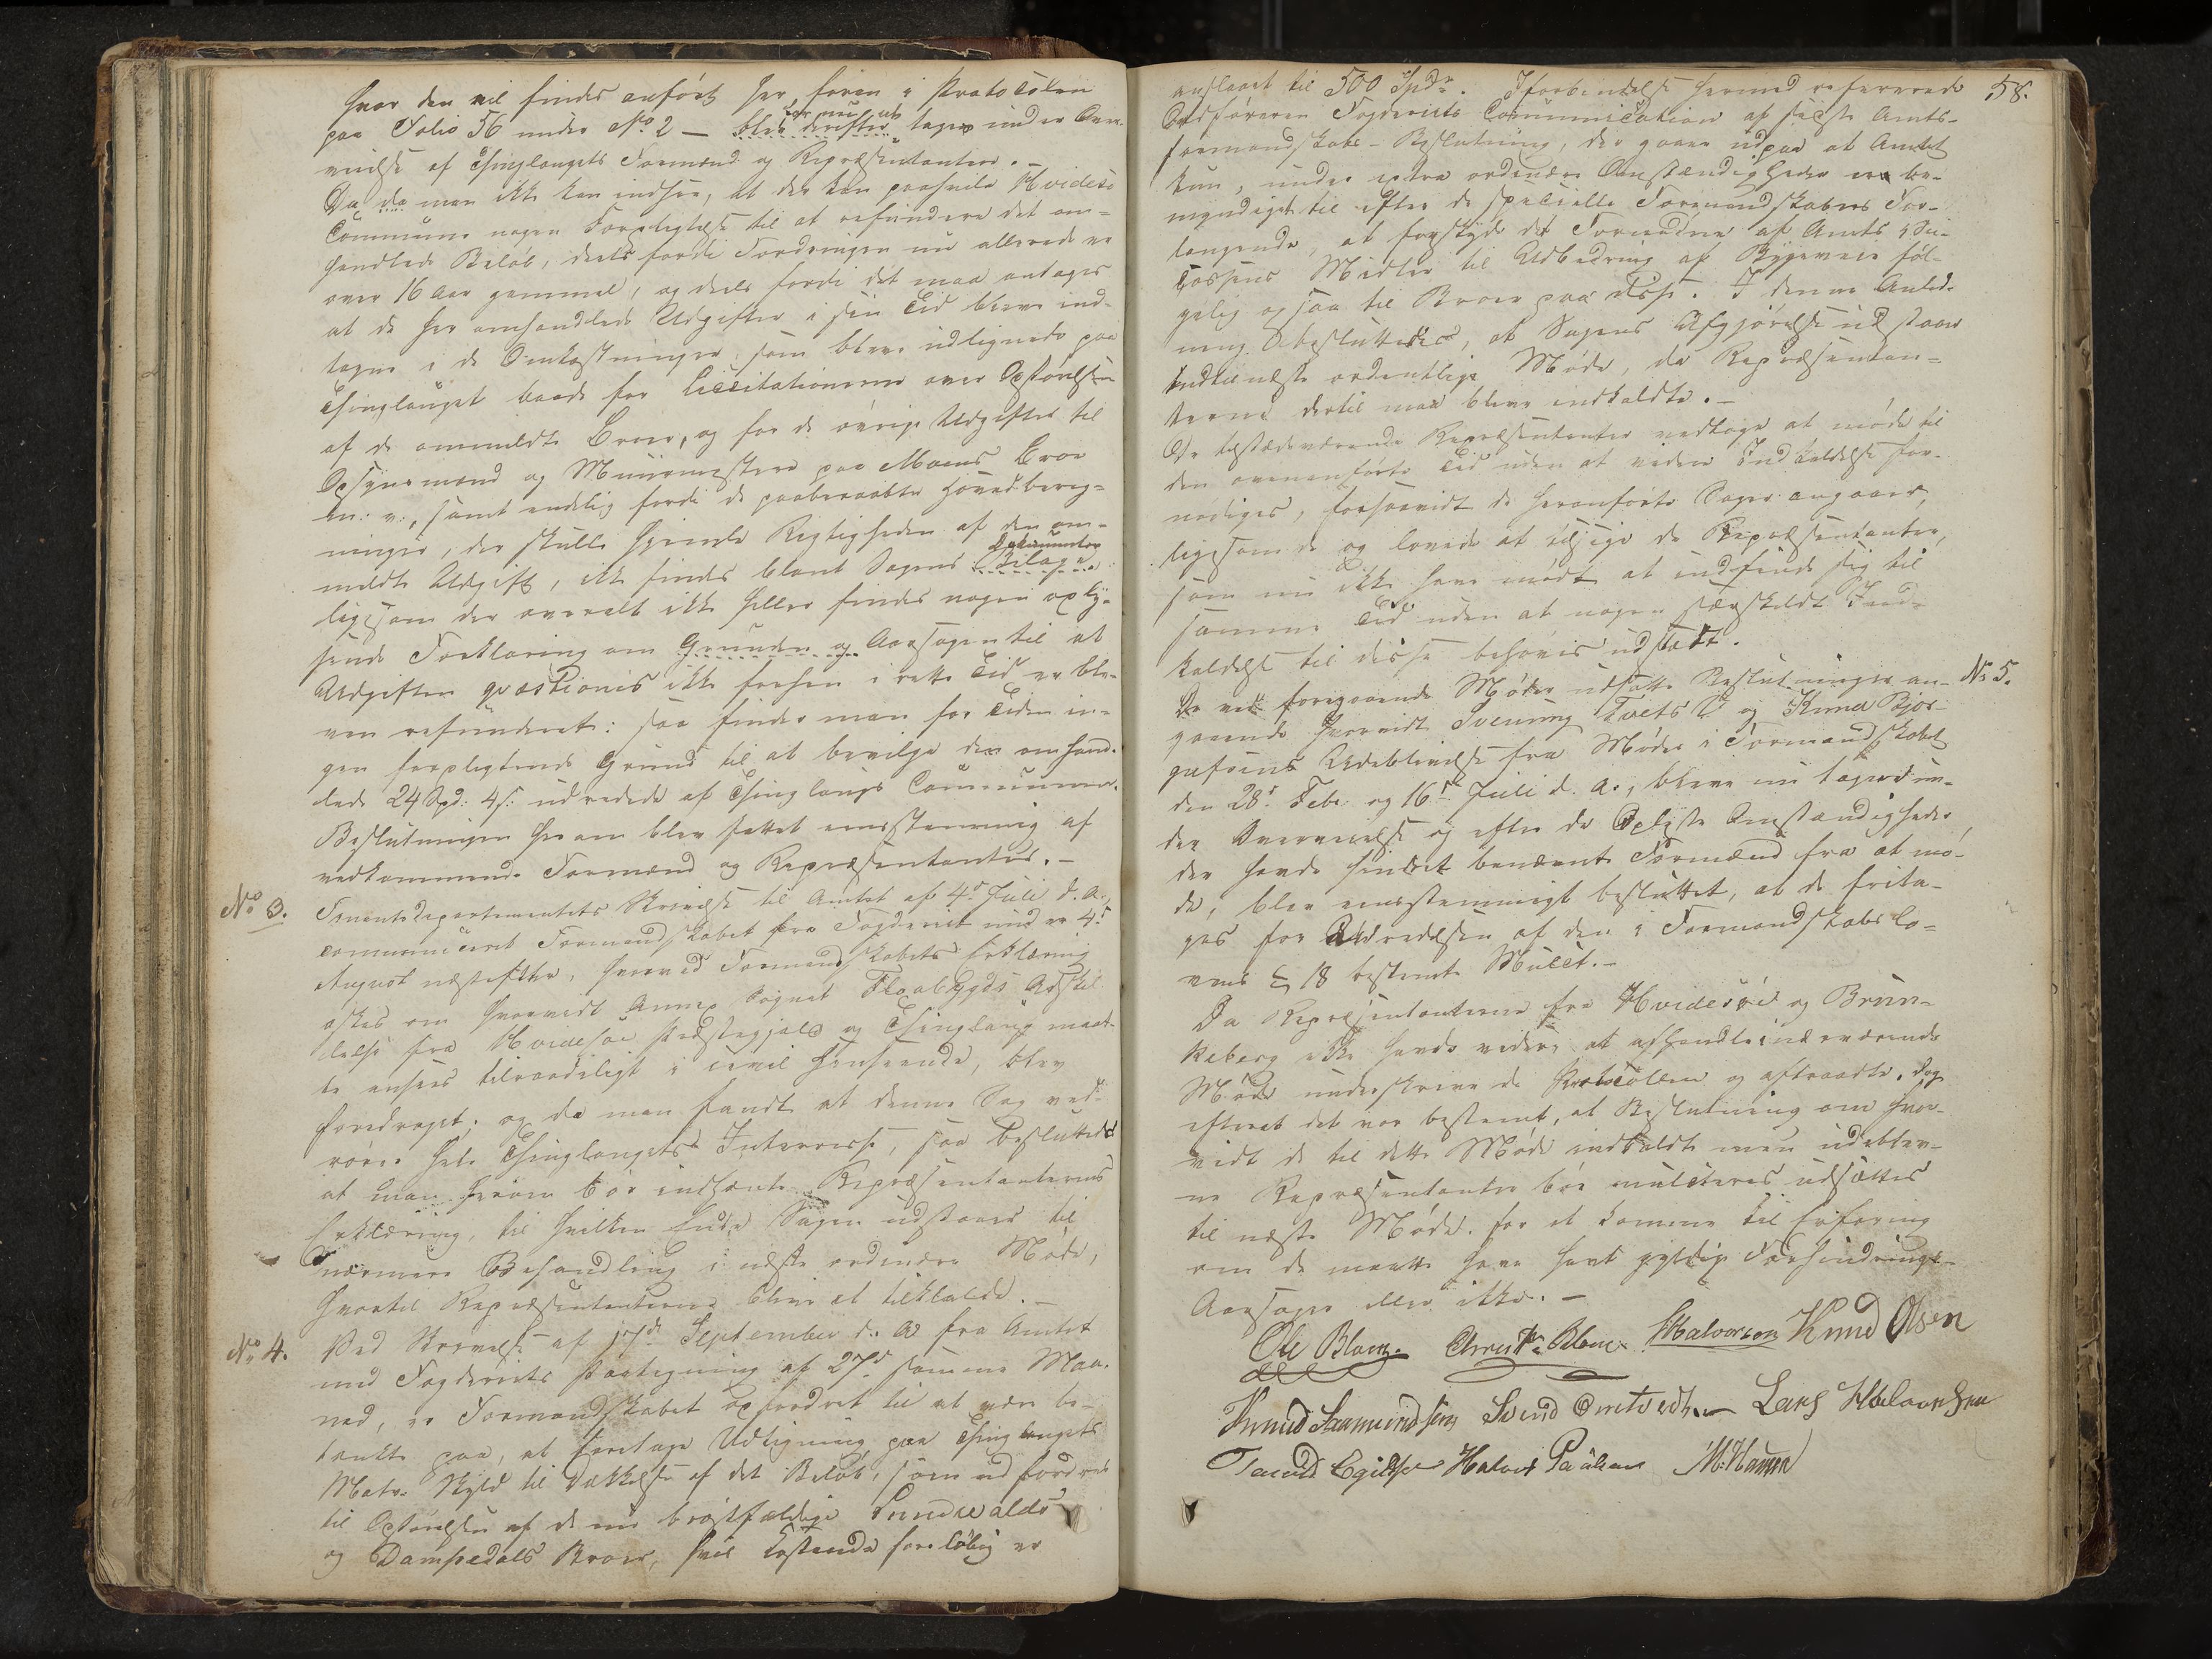 hvor den vil findes anført her foran i Protocolen
paa Folio 56 under No 2 — blev derefter tagen under Over-
veielse af Thinglaugets Formænd og Repræsentanter. —
Da da man ikke kan indsee, at der kan paahvile Hvidesø
Commune nogen Forpligtelse til at refundere det om-
handlede Beløb, deels fordi Fordringen nu allerede er
over 16 Aar gammel, og deels fordi det maa antages
at de her omhandlede Udgifter i sin Tid bleve ind-
tagne i de Omkostninger, som bleve udlignede paa
Thinglauget baade for Licitationerne over Opførelsen
af de ommeldte Broer, og for de øvrige Udgifter til
Opsynsmænd og Muurmestere paa Moens Broe
m: v:, samt endelig fordi de paaberaabte Hovedbereg-
ninger, der skulle hjemle Rigtigheden af den om-
meldte Udgift, ikke findes blant Sagens Dokumenter Bilage
ligesom der overalt ikke heller findes nogen oply-
sende Forklaring om Grunden og Aarsagen til at
Udgiften qvæstionis ikke forhen i rette Tid er ble-
ven refunderet: saa finder man for Tiden in-
gen forpligtende Grund til at bevilge den omhand-
lede 24 Spd: 4 s: udredede af Thinglaugs Communen.
Beslutningen herom blev fattet eenstemmig af
vedkommende Formænd og Repræsentanter. —
No 3. Departementets Skrivelse til Amtet af 4de Juli d. A.,
communiceret Formandskabet fra Fogderiet under 4de
August næstefter, hvorved Formandskabets Erklæring
æskes om hvorvidt Annex Sognet Flaabygds Adskil-
lelse fra Hvidesøe Præstegjeld og Thinglaug maat-
te ansees tilraadeligt i civil Henseende, blev
foredraget; og da man fandt at denne Sag ved-
rører hele Thinglaugets Interesse, saa besluttedes
at man herom bør indhente Repræsentanternes
Erklæring, til hvilken Ende Sagen udstaaer til
nærmere Behandling i næste ordinære Møde,
hvortil Repræsentanterne blive at tilkalde. —
No 4. Ved Skrivelse af 17de September d. A fra Amtet
med Fogderiets Paategning af 27de samme Maa-
ned, er Formandskabet opfordret til at være be-
tænkt paa, at foretage Udligning paa Thinglaugets
Matr. Skyld til Dækkelse af det Beløb, som udfordres
til Opførelsen af de nu brøstfældige Sundvalds
og Dampedals Broer, hvis Kostende foreløbig er
58.
anslaaet til 500 Spdr. I forbindelse hermed refererede
Ordføreren Fogderiets Communication af sidste Amts-
formandskabs-Beslutning, der gaaer ud paa at Amtet
kun, under extra ordinære Omstændigheder er be-
myndiget til efter de specielle Formandskabers For-
langende, at forskyde det Fornødne af Amts
Cassens Midler til Udbedring af Bygdeveie føl-
gelig og saa til Broer paa disse. I denne Anled-
ning besluttedes, at Sagens Afgjørelse udstaaer
indtil næste ordentlige Møde, da Repræsentan-
terne dertil maa blive indkaldte. —
De tilstedeværende Repræsentanter vedtoge at møde til
den ovenanførte Tid uden at videre Indkaldelse for-
nødiges, forsaavidt de heranførte Sager angaaer,
ligesom de og lovede at tilsige de Repræsentanter,
som nu ikke have mødt at indfinde sig til
samme Tid uden at nogen særskildt Ind-
kaldelse til disse behøves udstædt.
De ved foregaaende Møder udsatte Beslutninger an- No 5.
gaaende hvorvidt Svenning Tvets og Knud Bjør-
gufsens Udeblivelse fra Møder i Formandskabet
den 28de Febr. og 16de Juli d. A., bleve nu tagne un-
der Overveielse og efter de oplyste Omstændigheder,
der havde hindret benævnte Formænd fra at mø-
de, blev eenstemmigt besluttet, at de frita-
ges for Udredelsen af den i Formandskabslo-
vens § 18 bestemte Mulct. —
Da Repræsentanterne fra Hvidesøe og Brun-
keberg ikke havde videre at afhandle i nærværende
Møde underskreve de Protocollen og aftraadte, dog
efterat det var bestemt, at Beslutning om hvor-
vidt de til dette Møde indkaldte men udeblev-
ne Repræsentanter bør mulcteres udsættes
til næste Møde, for at komme til Erfaring
om de maatte have havt gyldig Forhindrings-
Aarsager eller ikke. —
Ole Blom. Christn Blom. Halvorsen Knud Olsen
Knud Saamundsen Svend Lars Halvorsen
Egilsen Halvor Paalsen